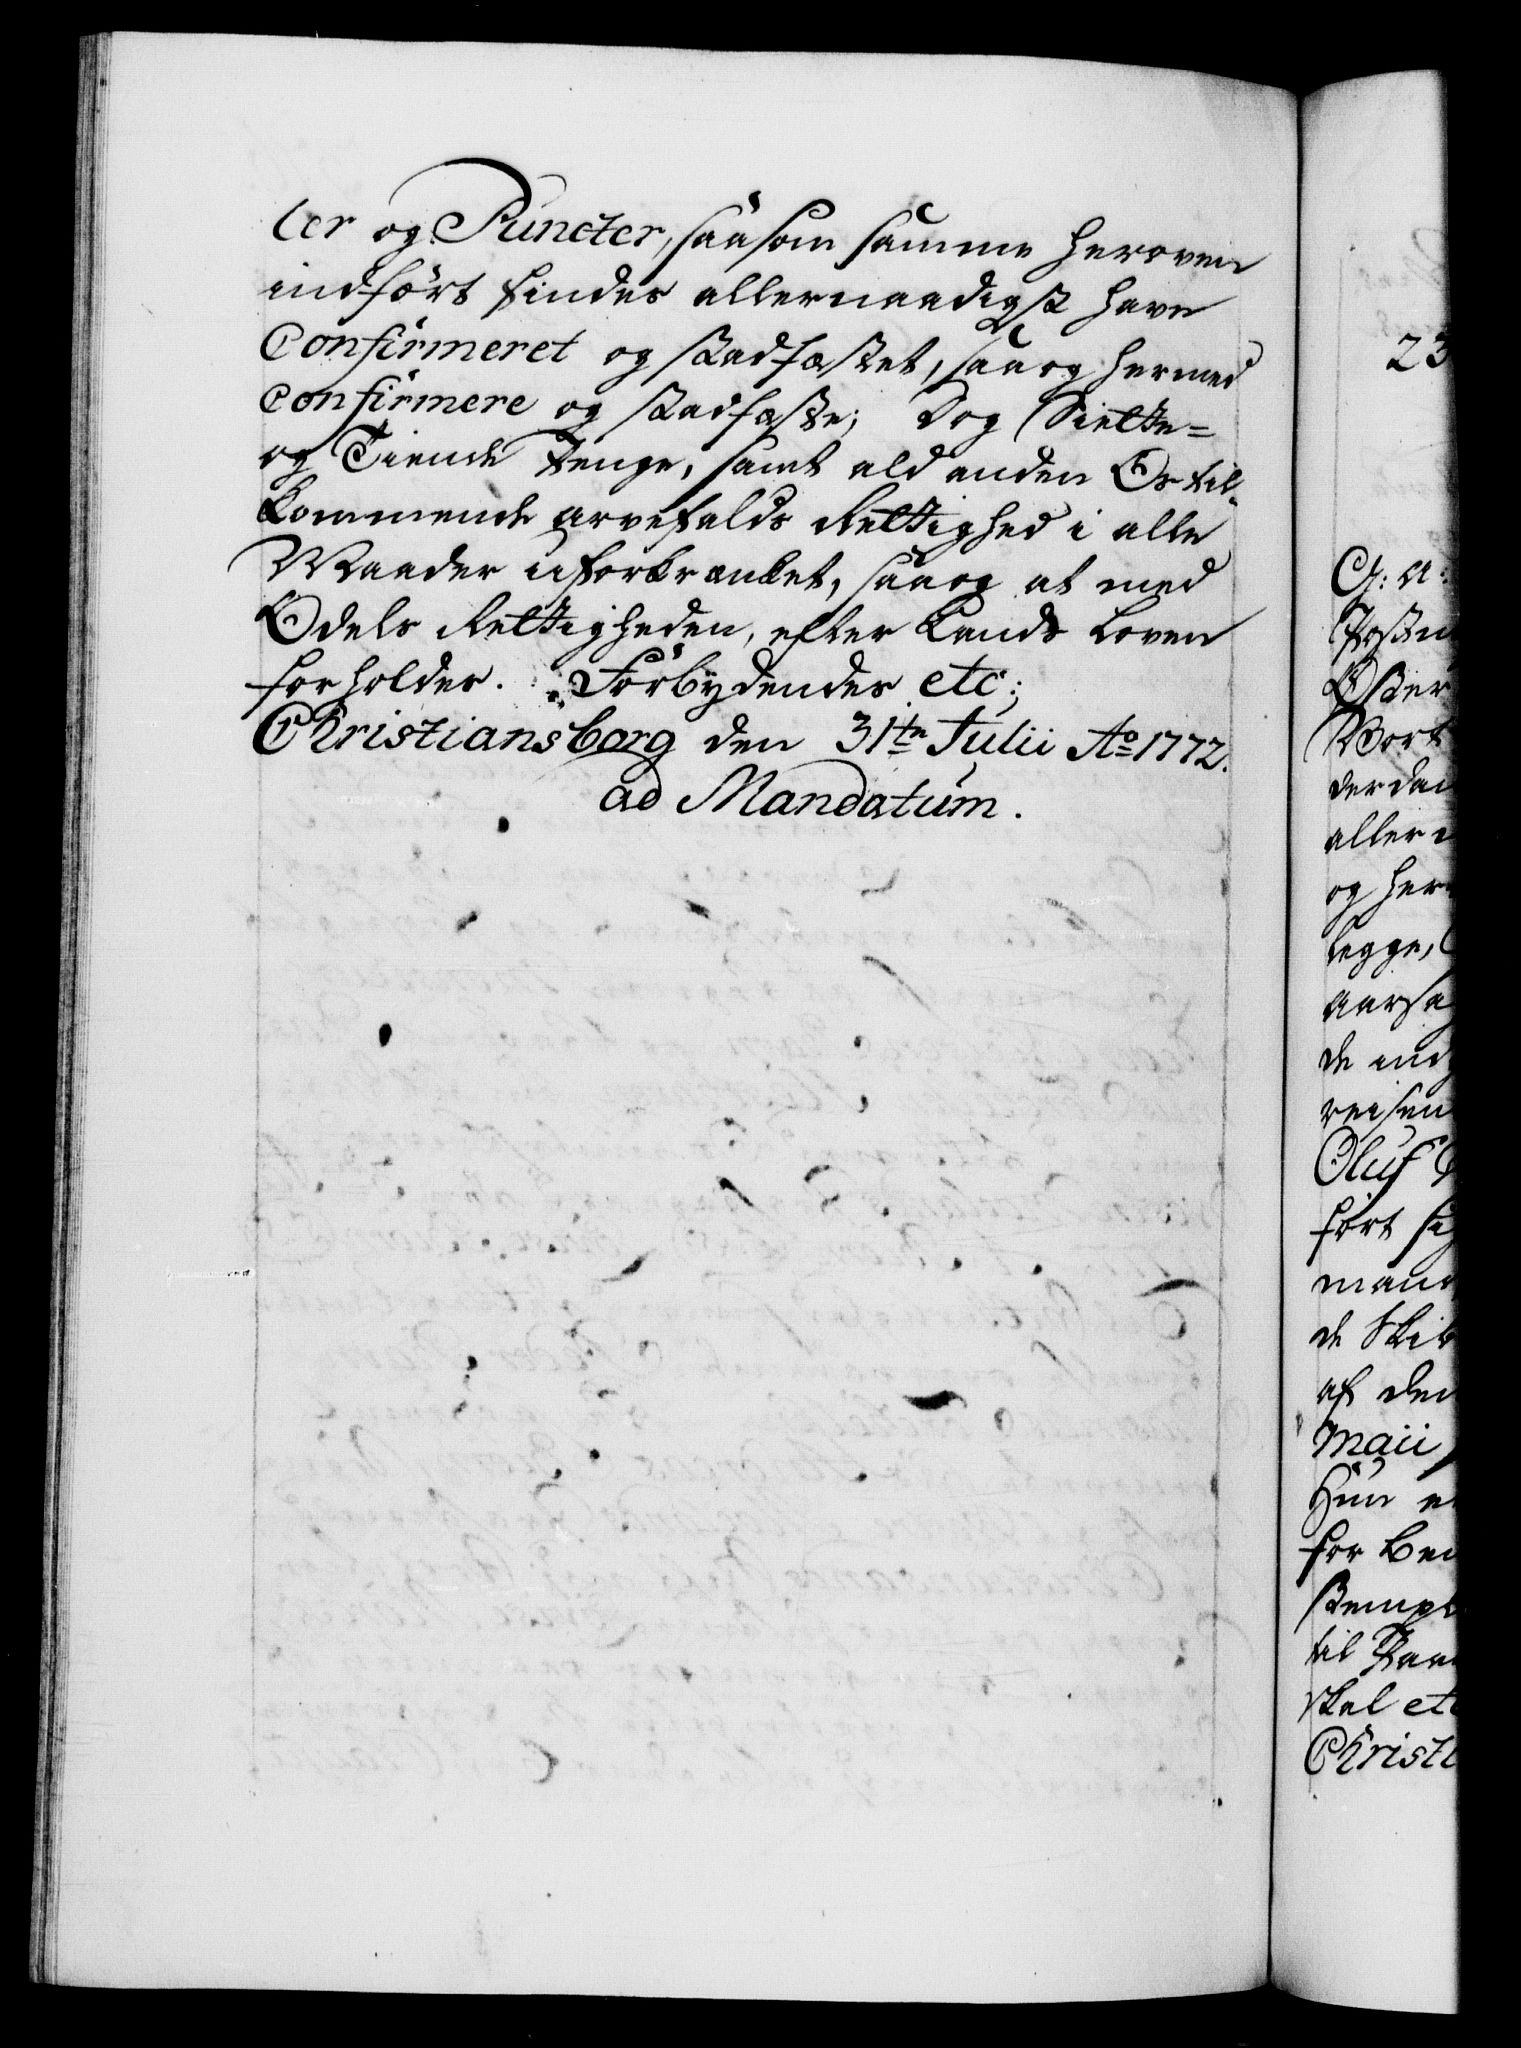 ler og Puncter, saasom samme heroven
indført findes allernaadigst have
Confirmeret og stadfæstet, saa og hermed
Confirmere og stadfæste; Dog Siette=
og Tiende Penge, samt ald anden Os til-
kommende arvefalds Rettighed i alle
Maader uforkrænket, saa og at med
Odels Rettigheden, efter Lands Loven
forholdes. Forbydendes etc:
Christiansborg den 31te Julii Ao 1772.
ad Mandatum.
23
G: A:
Øster
Vort
der dan
aller
og her
legge,
aarsag
de ind
reisen
Oluf
ført sig
mand
de Skib
af den
Maii
Hun
for Be
Stempl
til
skal etc
Christi